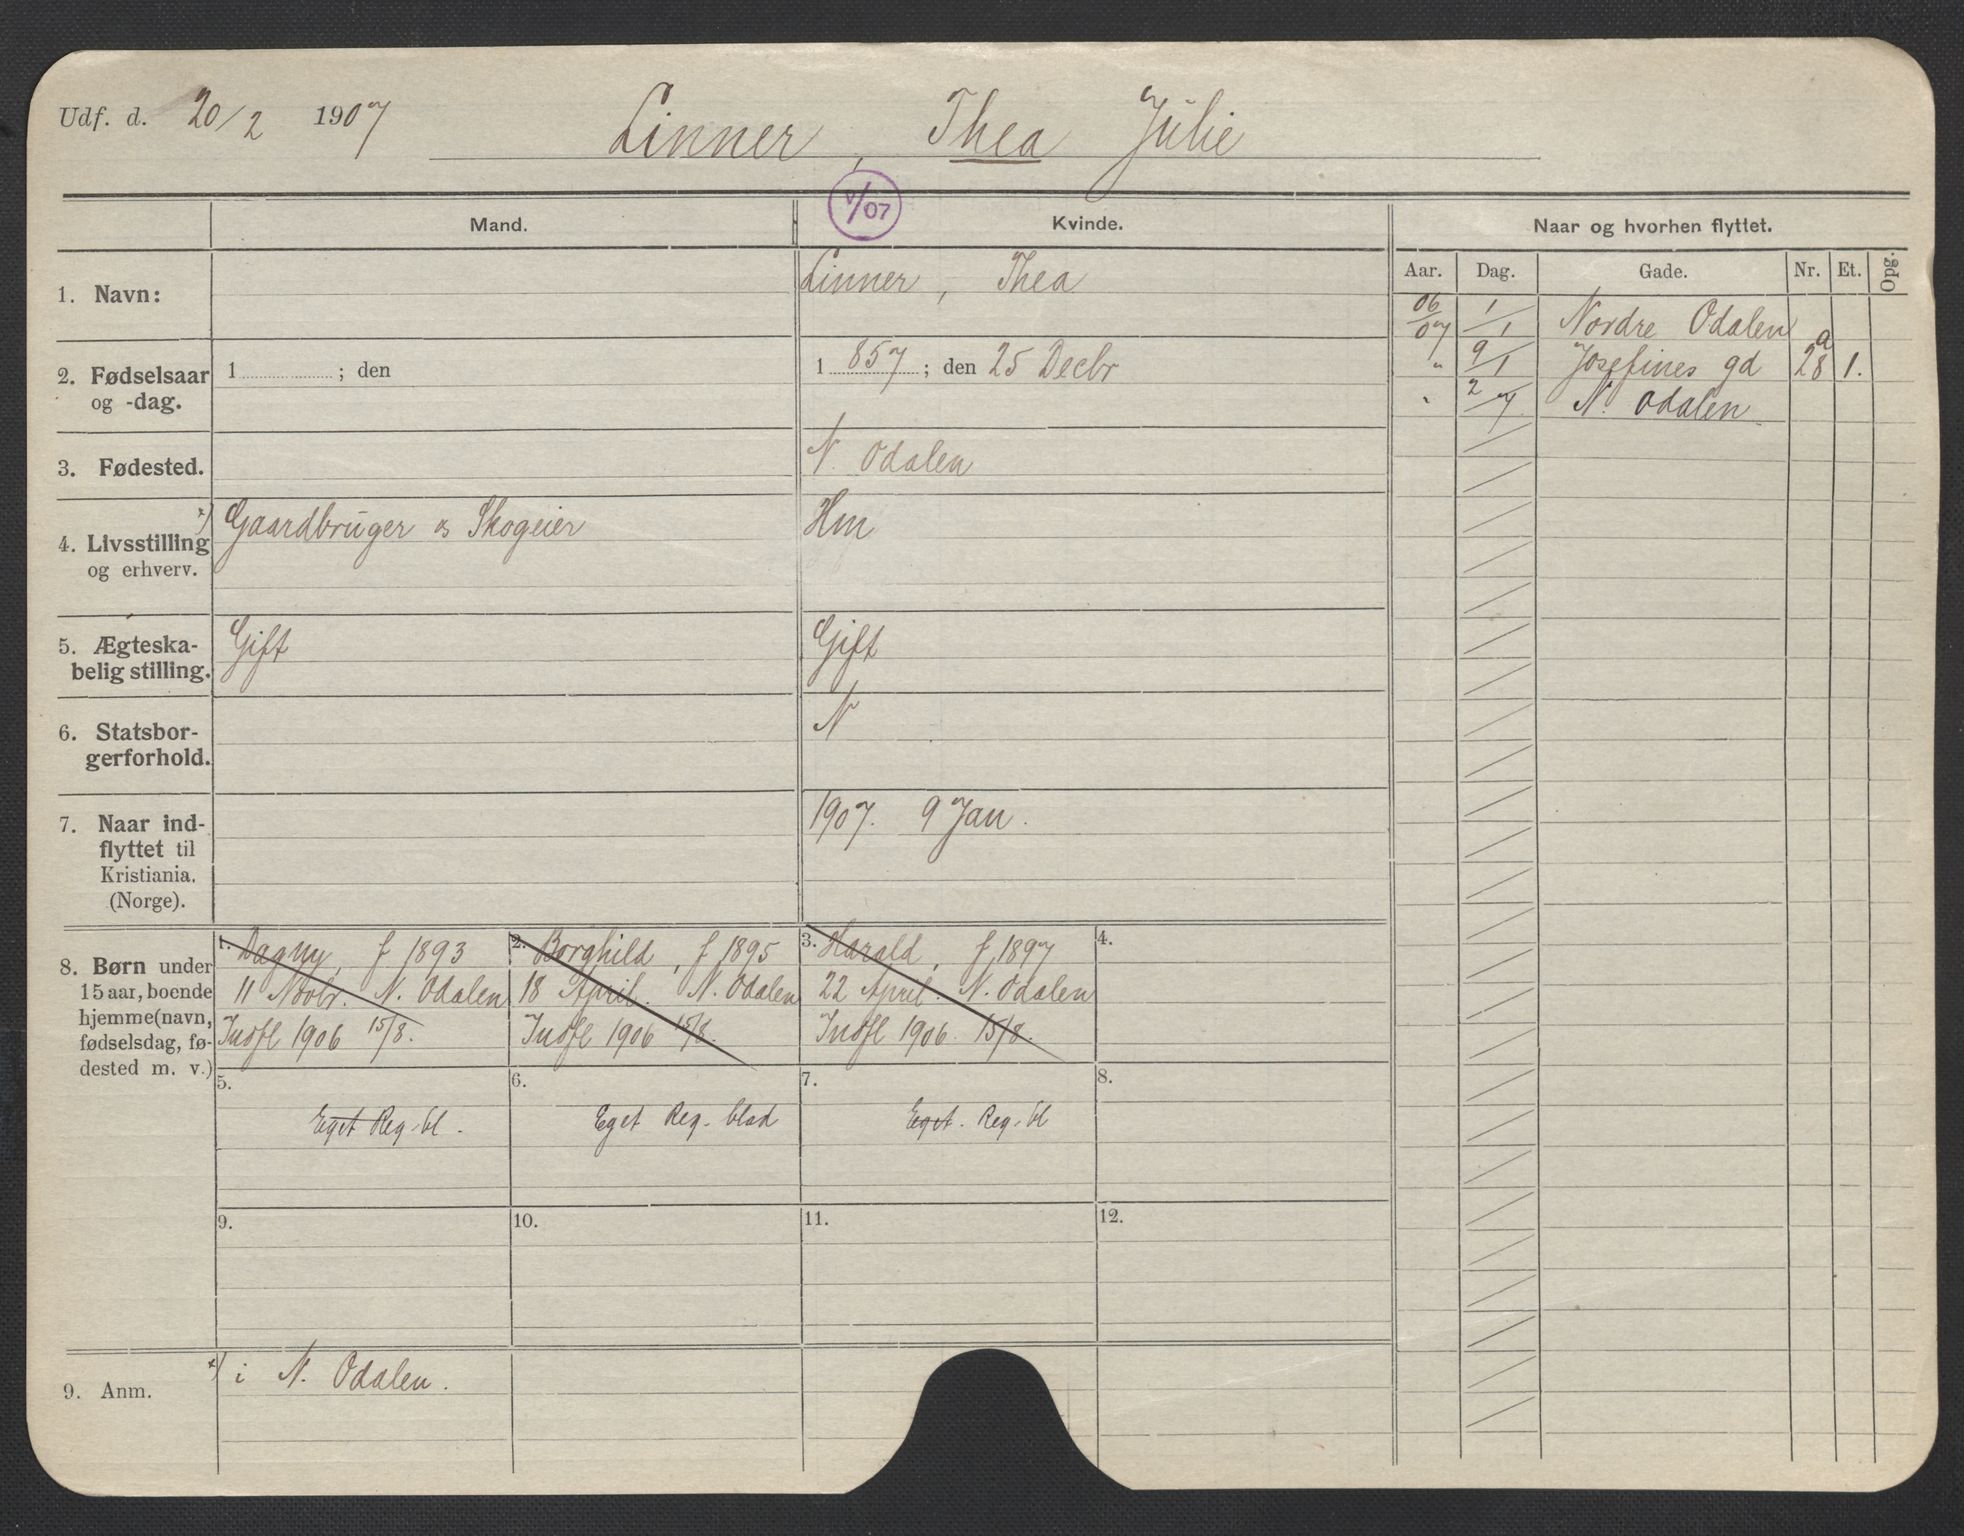 Udf. d. 20/2 1907 Linner, Thea Julie
V/07
Mand. Kvinde. Naar og hvorhen flyttet.
Aar. Dag. Gade. Nr. Et. Opg.
1. Navn: Linner, Thea
06/07 1/1 Nordre Odalen
" 9/1 Josefines gd 28a 1.
" 2/7 N. Odalen
2. Fødselsaar
og -dag.
1 ; den
1 857 ; den 25 Decbr
3. Fødested. N. Odalen
4. Livsstilling
og erhverv.
*) Gaardbruger & Skogeier
Hm
5. Ægteska-
belig stilling.
Gift
Gift
6. Statsbor-
gerforhold.
N
7. Naar ind-
flyttet til
Kristiania.
(Norge).
1907. 9 Jan.
8. Børn under
15 aar, boende
hjemme (navn,
fødselsdag, fø-
dested m. v.)
1. Dagny, f 1893
11 Novbr. N. Odalen
Indfl 1906 15/8.
2. Borghild, f 1895
18 April. N. Odalen
Indfl 1906 15/8.
3. Harald, f 1897
22 April. N. Odalen
Indfl 1906. 15/8.
4.
5.
Eget Reg.bl.
6.
Eget Reg. blad
7.
Eget. Reg.bl
8.
9.
10.
11.
12.
9. Anm. *) i N. Odalen.